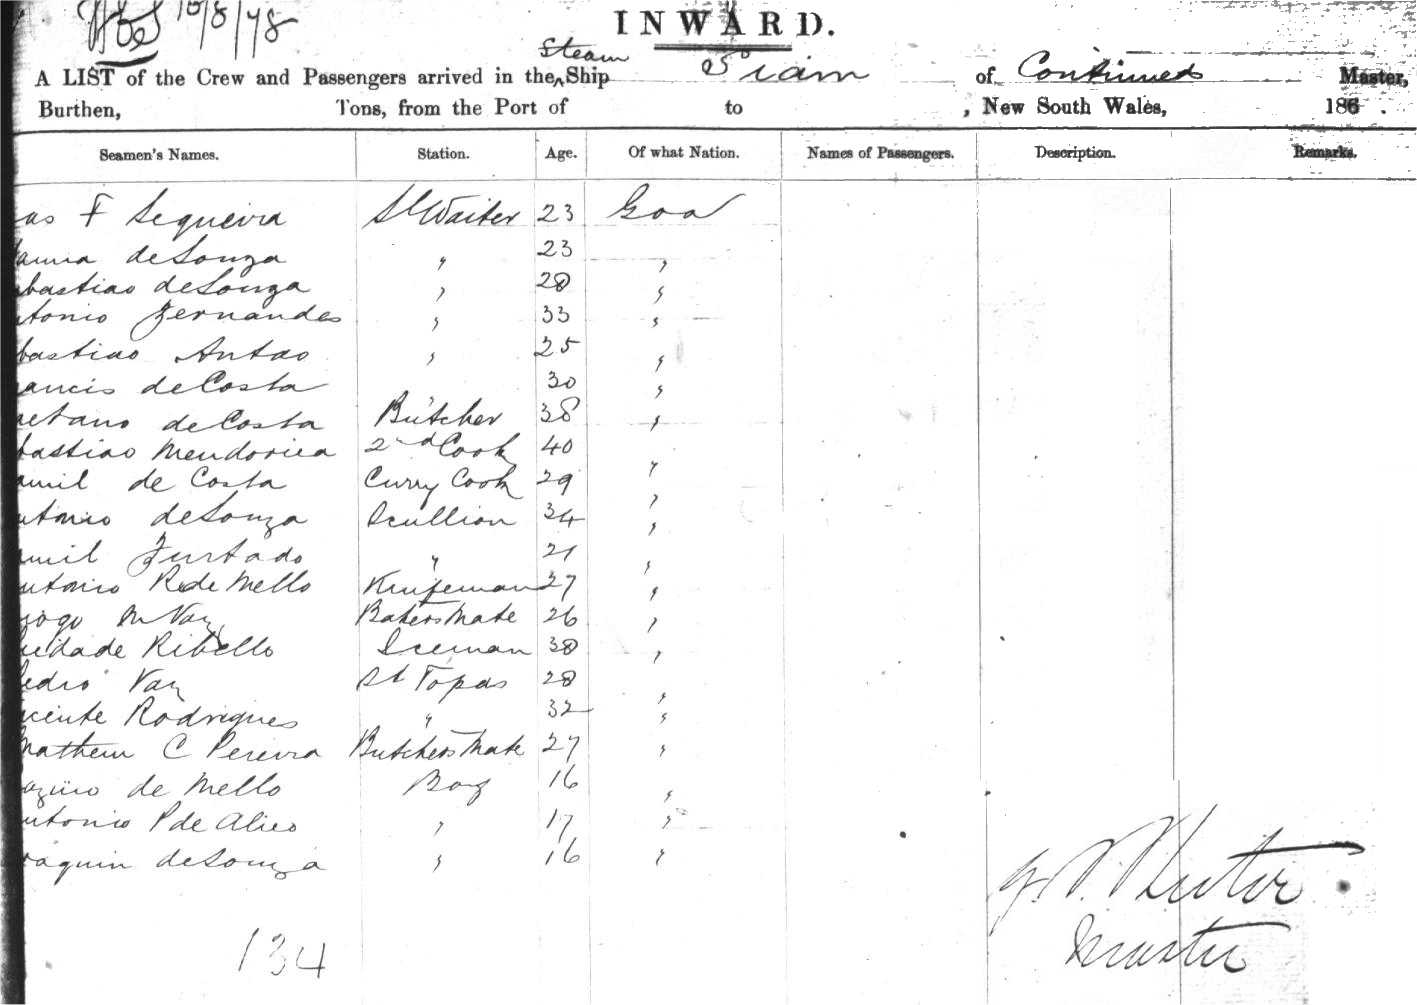 10/8/78
INWARD.
Steam
A LIST of the Crew and Passengers arrived in the Ship Siam of Continued Master,
Burthen, Tons, from the Port of to , New South Wales, 186 .
Seamen's Names. Station. Age. Of what Nation. Names of Passengers. Description. Remarks.
as F Sequeira Sl Waiter 23 Goa
de Souza " 23 "
bastiao de Souza " 28 "
tonio Fernandes " 33 "
bastiao Antao " 25 "
ancis de Costa 30 "
etano de Costa Butcher 38 "
bastiao Mendonca 2nd Cook 40 "
de Costa Curry Cook 29 "
utonio de Souza Scullion 34 "
Furtado " 21 "
utonio R de Mello Knifeman 27 "
ogo M Vaz Bakers Mate 26 "
iedade Ribello Iceman 38 "
edro Vaz St Topas 28 "
icente Rodrigues " 32 "
Mathew C Pereira Butchers Mate 27 "
de Mello Boy 16 "
utonio P de " 17 "
oaquin de Souza " 16 "
Master
134